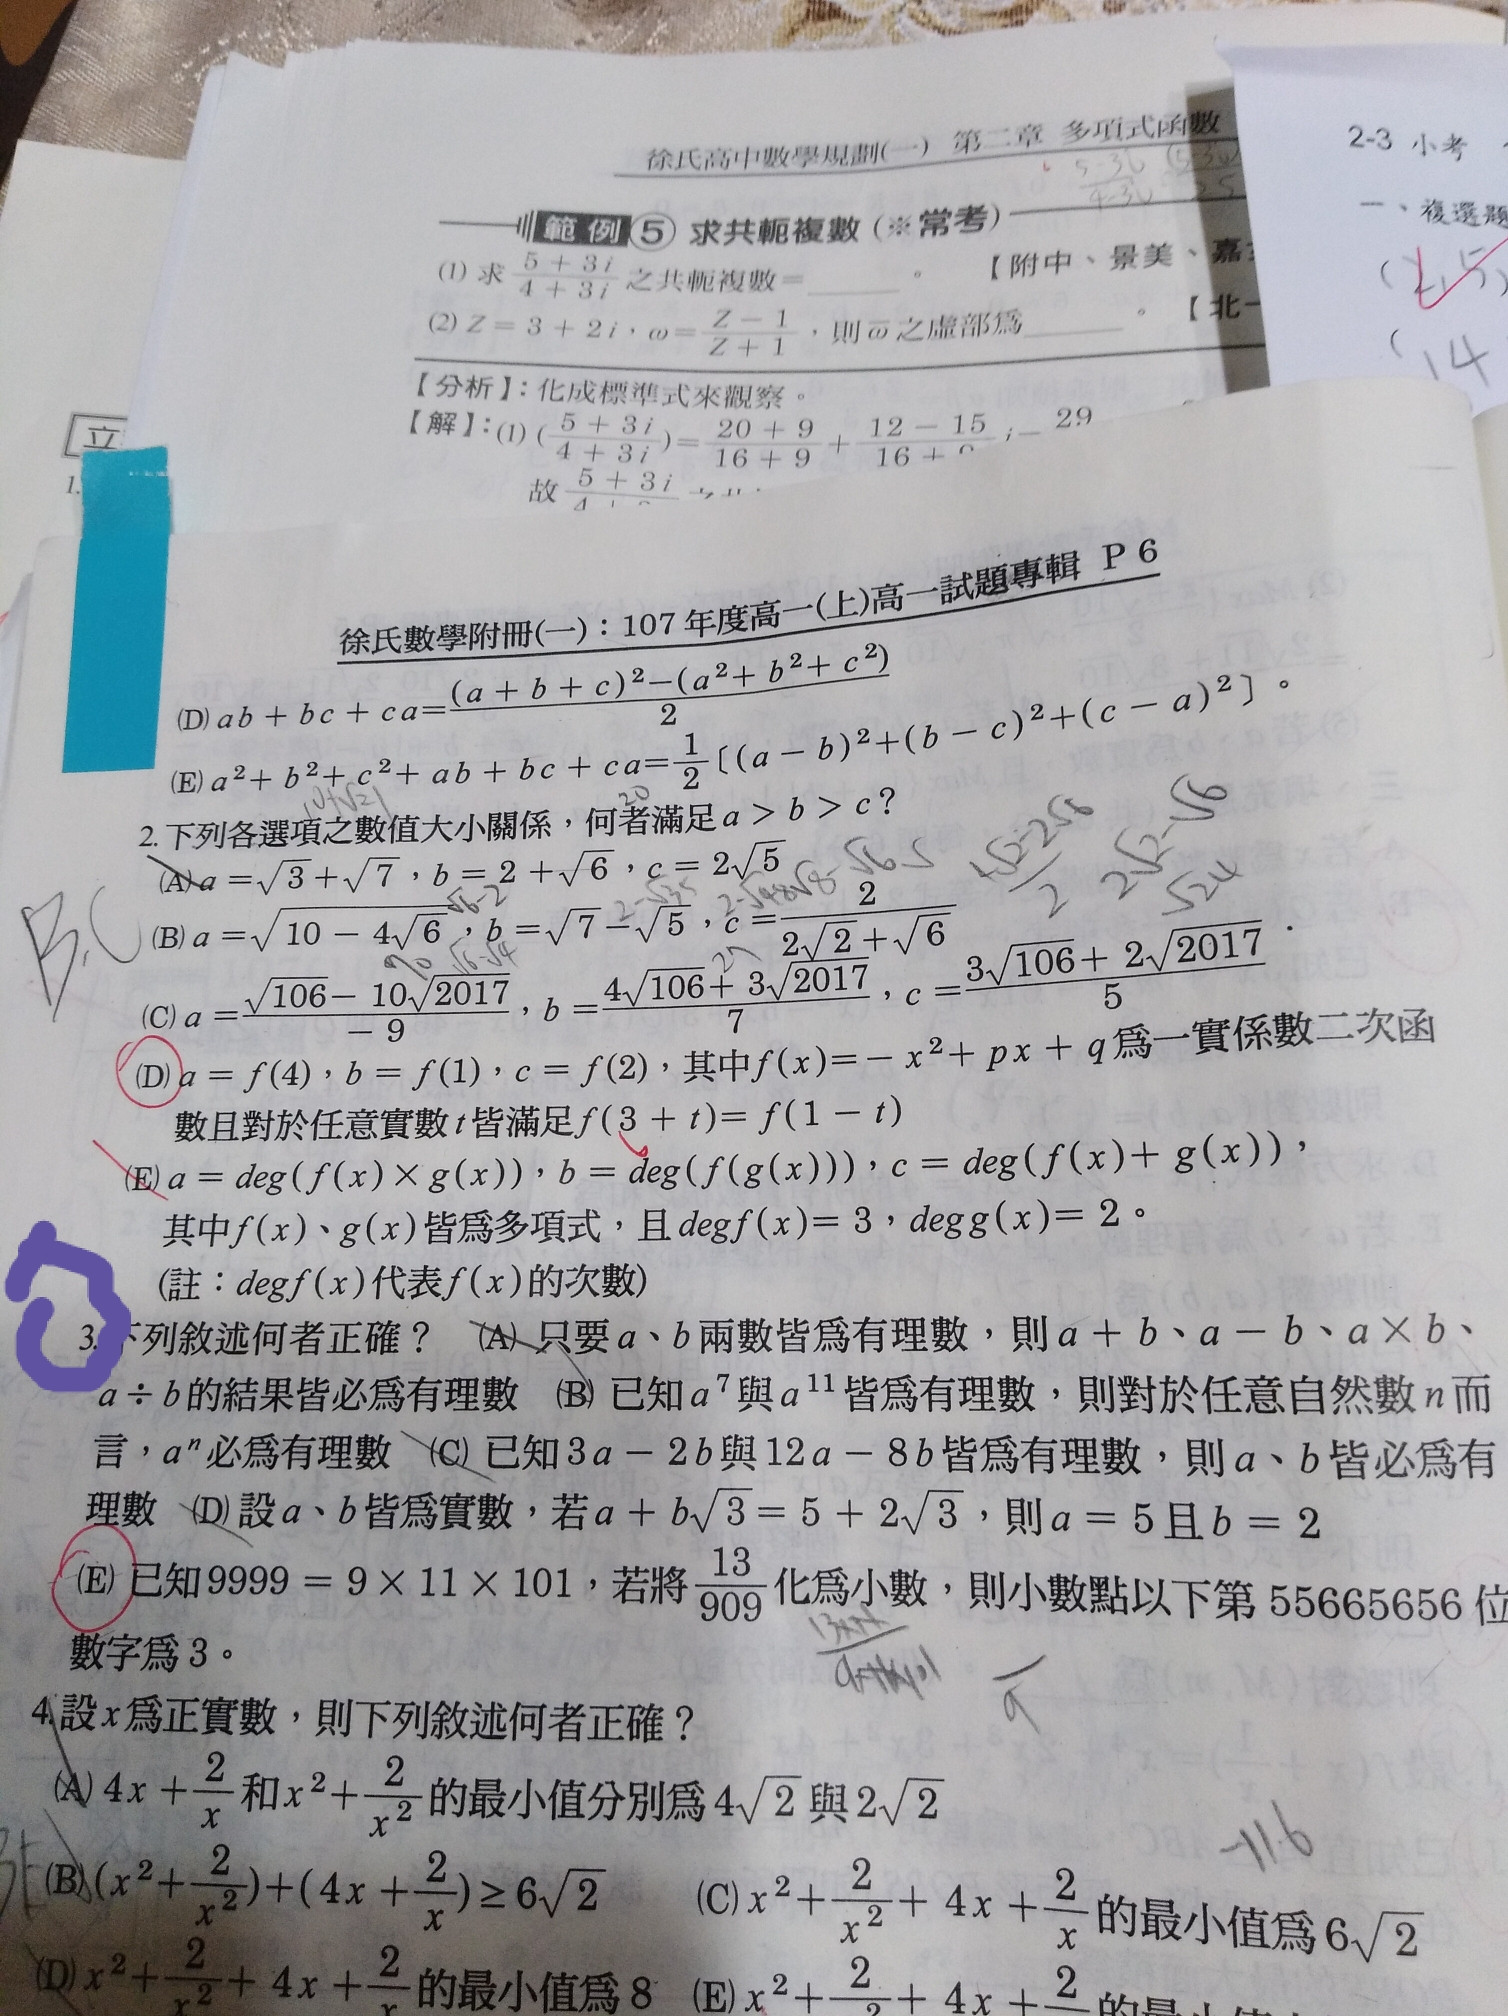 徐氏高中數學規劃(一) 第二章 多項式函數
2-3 小考
一、複選題
範例 ⑤ 求共軛複數 (※常考)
(1) 求 (5 + 3i)/(4 + 3i) 之共軛複數 = ______ 。 【附中、景美、嘉
(2) Z = 3 + 2i,ω = (Z − 1)/(Z + 1),則 ω̅ 之虛部爲______ 。 【北一
【分析】:化成標準式來觀察。
【解】:(1) ((5 + 3i)/(4 + 3i)) = (20 + 9)/(16 + 9) + (12 − 15)/(16 + i − 29
故 (5 + 3i)/4
立
1.
14
徐氏數學附冊(一):107 年度高一(上)高一試題專輯 P 6
(D) ab + bc + ca = ((a + b + c)² − (a² + b² + c²))/2
(E) a² + b² + c² + ab + bc + ca = 1/2 [(a − b)² + (b − c)² + (c − a)²]。
2. 下列各選項之數值大小關係,何者滿足 a > b > c?
(A) a = √3 + √7,b = 2 + √6,c = 2√5
(B) a = √(10 − 4√6),b = √7 − √5,c = 2/(2√2 + √6)
B,C
(C) a = (√106 − 10√2017)/(− 9),b = (4√106 + 3√2017)/7,c = (3√106 + 2√2017)/5
(D) a = f(4),b = f(1),c = f(2),其中 f(x) = − x² + px + q 爲一實係數二次函
數且對於任意實數 t 皆滿足 f(3 + t) = f(1 − t)
(E) a = deg(f(x) × g(x)),b = deg(f(g(x))),c = deg(f(x) + g(x)),
其中 f(x)、g(x) 皆爲多項式,且 deg f(x) = 3,deg g(x) = 2。
(註:deg f(x) 代表 f(x) 的次數)
3. 下列敘述何者正確? (A) 只要 a、b 兩數皆爲有理數,則 a + b、a − b、a × b、
a ÷ b 的結果皆必爲有理數 (B) 已知 a⁷ 與 a¹¹ 皆爲有理數,則對於任意自然數 n 而
言,aⁿ 必爲有理數 (C) 已知 3a − 2b 與 12a − 8b 皆爲有理數,則 a、b 皆必爲有
理數 (D) 設 a、b 皆爲實數,若 a + b√3 = 5 + 2√3,則 a = 5 且 b = 2
(E) 已知 9999 = 9 × 11 × 101,若將 13/909 化爲小數,則小數點以下第 55665656 位
數字爲 3。
4. 設 x 爲正實數,則下列敘述何者正確?
(A) 4x + 2/x 和 x² + 2/x² 的最小值分別爲 4√2 與 2√2
(B) (x² + 2/x²) + (4x + 2/x) ≥ 6√2 (C) x² + 2/x² + 4x + 2/x 的最小值爲 6√2
(D) x² + 2/x² + 4x + 2/x 的最小值爲 8 (E) x² + 2/x² + 4x + 2/x 的最小值